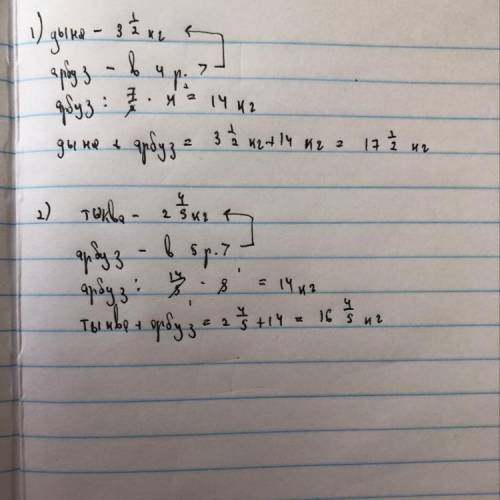 1) дыня - 3 1/2 кг
арбуз - в 4 р. >
арбуз: 7/2 · 4 2 = 14 кг
дыня + арбуз = 3 1/2 кг + 14 кг = 17 1/2 кг
2) тыква - 2 4/5 кг
арбуз - в 5 р. >
арбуз: 14/5 · 5 1 = 14 кг
тыква + арбуз = 2 4/5 + 14 = 16 4/5 кг